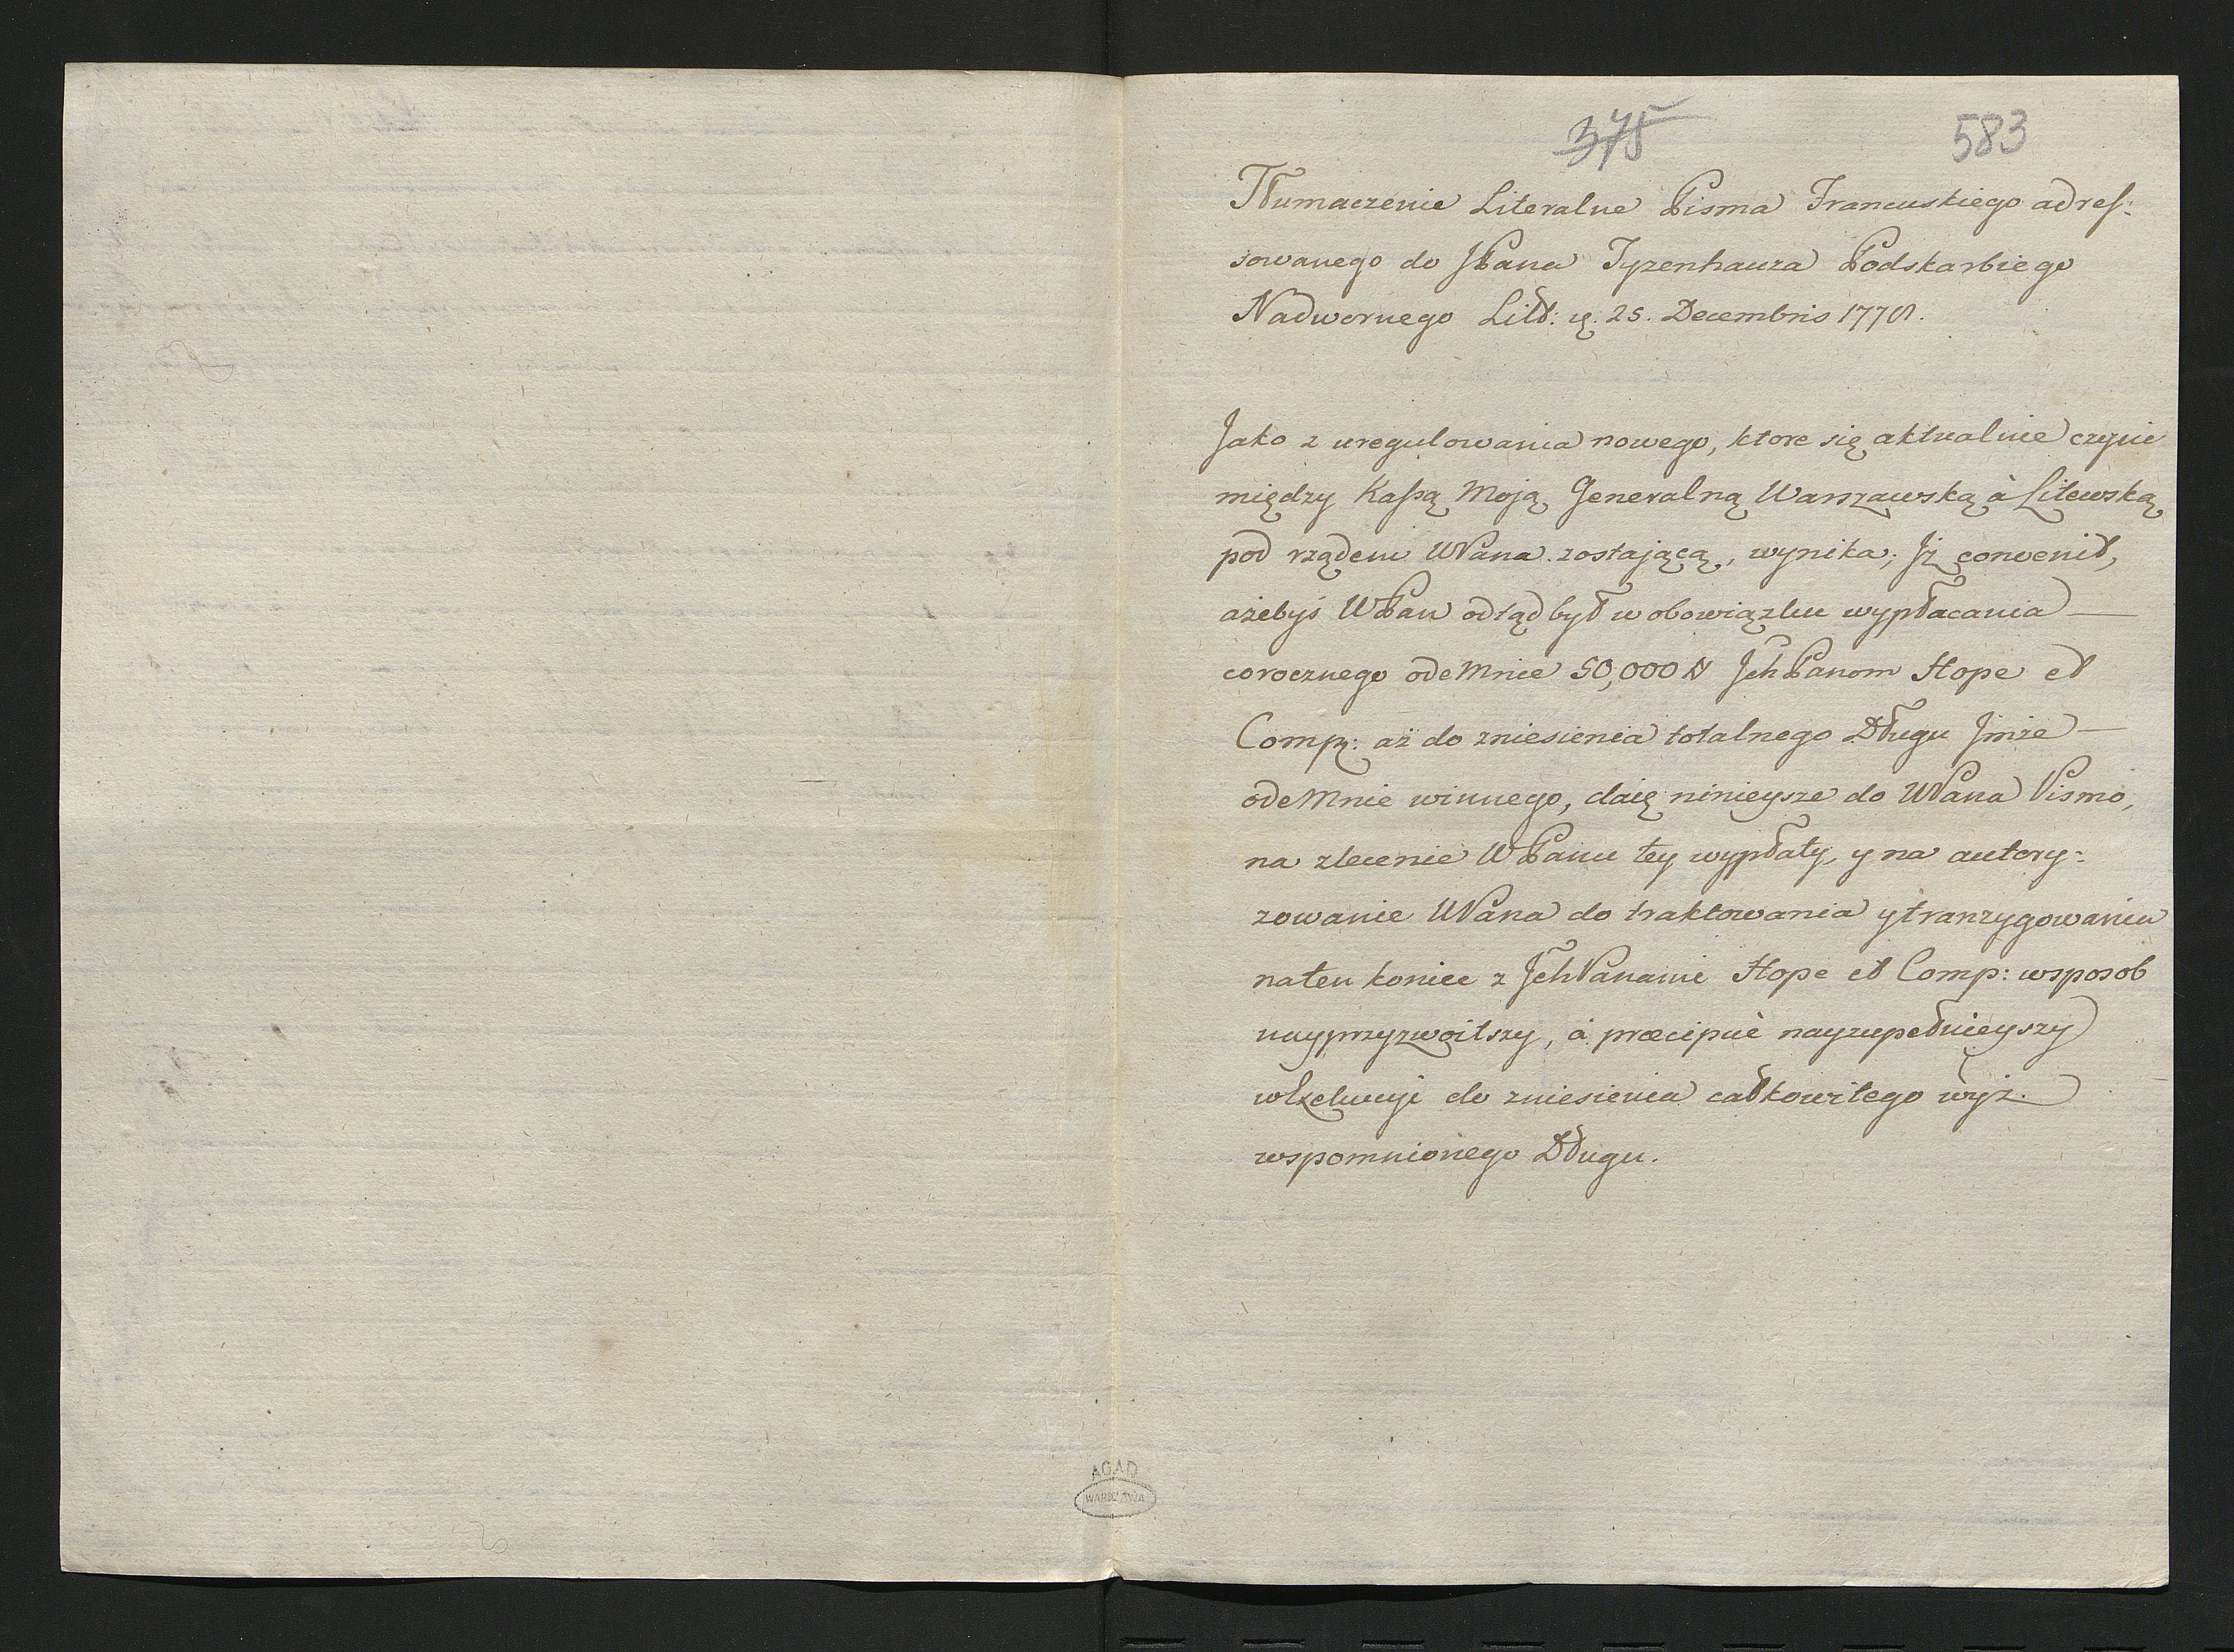 375 583
Tłumaczenie Literalne Pisma Francuskiego adres:
sowanego do JPana Tyzenhauza Podskarbiego
Nadwornego Litt: 25. Decembris 1778.
Jako z uregulowania nowego, ktore się aktualnie czyni
między Kassą Moją Generalną Warszawską à Litewską
pod rządem WPana zostaiącą, wynika; Jż convenit,
ażebyś WPan odtąd był w obowiązku wypłacania —
corocznego odeMnie 50,000 # JchPanom Hope et
Comp: aż do zniesienia totalnego Długu Jmże —
odeMnie winnego, daię ninieysze do WPana Pismo,
na zlecenie WPanu tey wypłaty, y na autory:
zowanie WPana do traktowania y tranzygowania
na ten koniec z JchPanami Hope et Comp: wsposob
nayprzyzwoitszy, à præcipuè nayzupełnieyszy
do zniesienia całkowitego wyż.
wspomnionego Długu.
AGAD
WARSZAWA